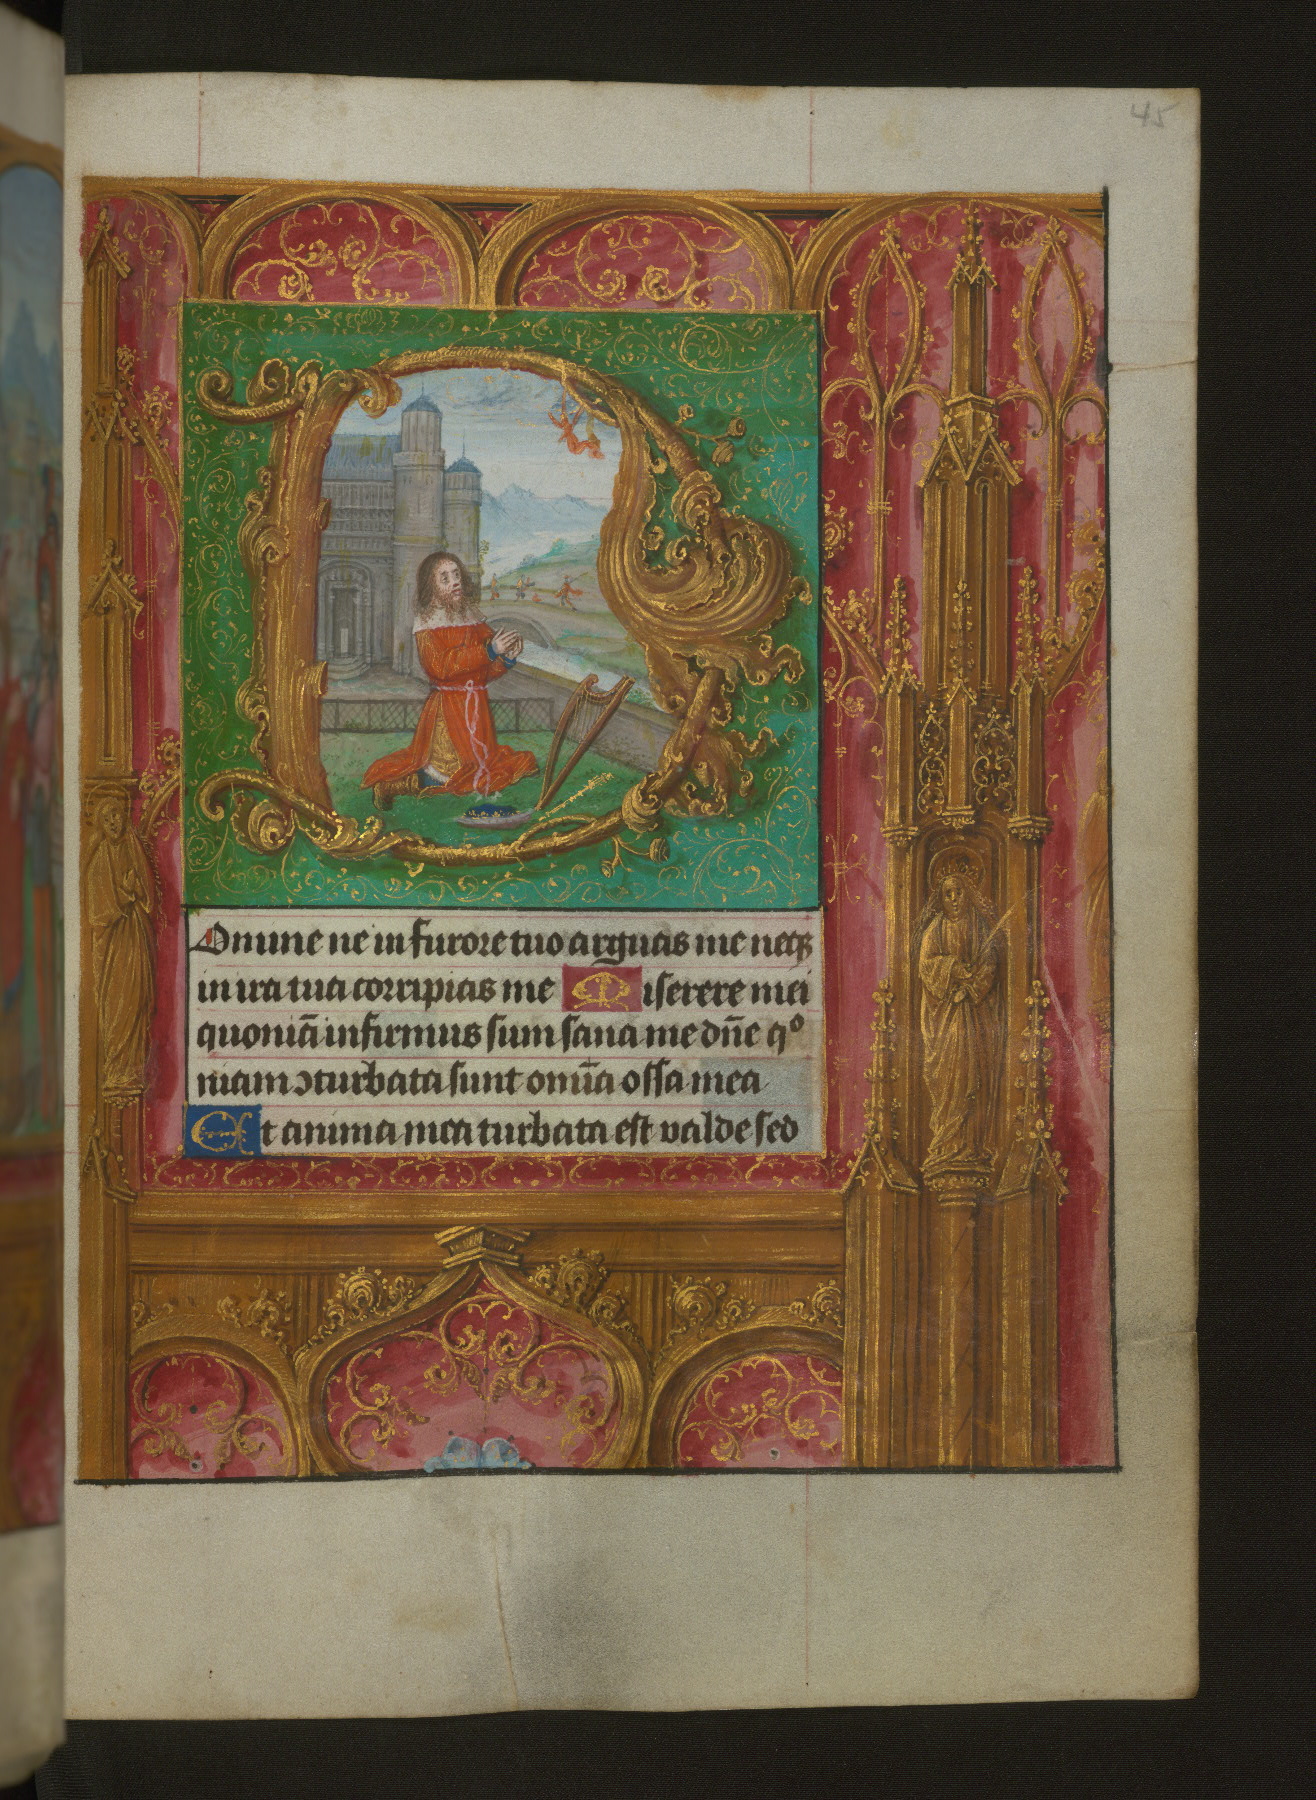 45
D
Omine ne in furore tuo arguas me neqꝫ
in ira tua corripias me Miserere mei
quoniā infirmus sum sana me dn̄e qͦ
niam ↄturbata sunt om̄ia ossa mea
Et anima mea turbata est valde sed